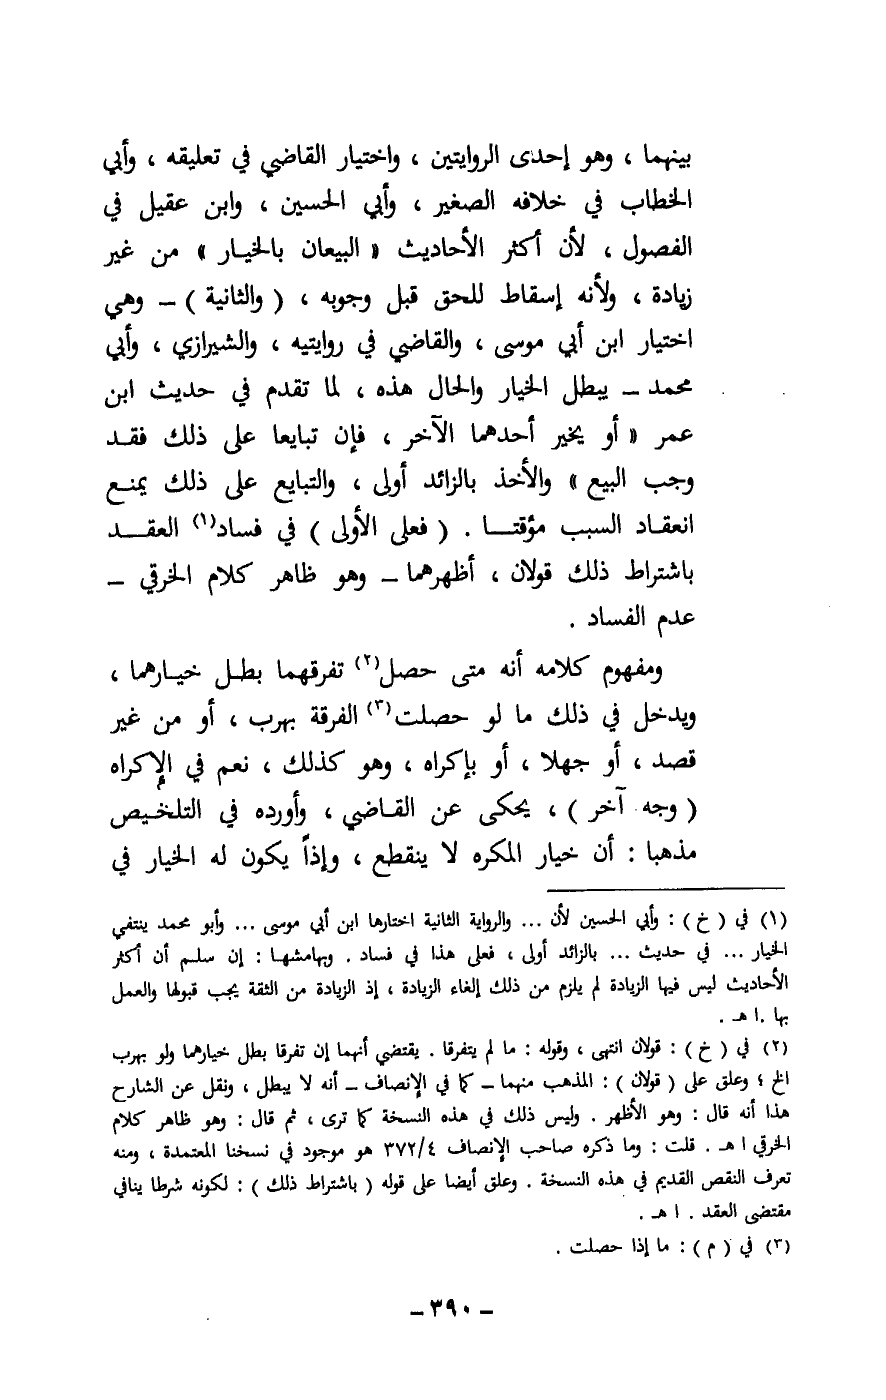 بينهما ، وهو إحدى الروايتين ، واختيار القاضي في تعليقه ، وأبي
الخطاب في خلافه الصغير ، وأبي الحسين ، وابن عقيل في
الفصول ، لأن أكثر الأحاديث « البيعان بالخيار » من غير
زيادة ، ولأنه إسقاط للحق قبل وجوبه ، ( والثانية ) – وهي
اختيار ابن أبي موسى ، والقاضي في روايتيه ، والشيرازي ، وأبي
محمد – يبطل الخيار والحال هذه ، لما تقدم في حديث ابن
عمر « أو يخير أحدهما الآخر ، فإن تبايعا على ذلك فقد
وجب البيع » والأخذ بالزائد أولى ، والتبايع على ذلك يمنع
انعقاد السبب مؤقتا . ( فعلى الأولى ) في فساد(١) العقد
باشتراط ذلك قولان ، أظهرهما – وهو ظاهر كلام الخرقي –
عدم الفساد .
ومفهوم كلامه أنه متى حصل(٢) تفرقهما بطل خيارهما ،
ويدخل في ذلك ما لو حصلت(٣) الفرقة بهرب ، أو من غير
قصد ، أو جهلا ، أو بإكراه ، وهو كذلك ، نعم في الإكراه
( وجه آخر ) ، يحكى عن القاضي ، وأورده في التلخيص
مذهبا : أن خيار المكره لا ينقطع ، وإذاً يكون له الخيار في
(١) في ( خ ) : وأبي الحسين لأن ... والرواية الثانية اختارها ابن أبي موسى ... وأبو محمد ينتفي
الخيار ... في حديث ... بالزائد أولى ، فعلى هذا في فساد . وبهامشها : إن سلم أن أكثر
الأحاديث ليس فيها الزيادة لم يلزم من ذلك إلغاء الزيادة ، إذ الزيادة من الثقة يجب قبولها والعمل
بها .ا هـ .
(٢) في ( خ ) : قولان انتهى ، وقوله : ما لم يتفرقا . يقتضي أنهما إن تفرقا بطل خيارهما ولو بهرب
الخ ؛ وعلق على ( قولان ) : المذهب منهما – كما في الإنصاف – أنه لا يبطل ، ونقل عن الشارح
هذا أنه قال : وهو الأظهر . وليس ذلك في هذه النسخة كما ترى ، ثم قال : وهو ظاهر كلام
الخرقي ا هـ . قلت : وما ذكره صاحب الإنصاف ٣٧٢/٤ هو موجود في نسخنا المعتمدة ، ومنه
تعرف النقص القديم في هذه النسخة . وعلق أيضا على قوله ( باشتراط ذلك ) : لكونه شرطا ينافي
مقتضى العقد . ا هـ .
(٣) في ( م ) : ما إذا حصلت .
– ٣٩٠ –